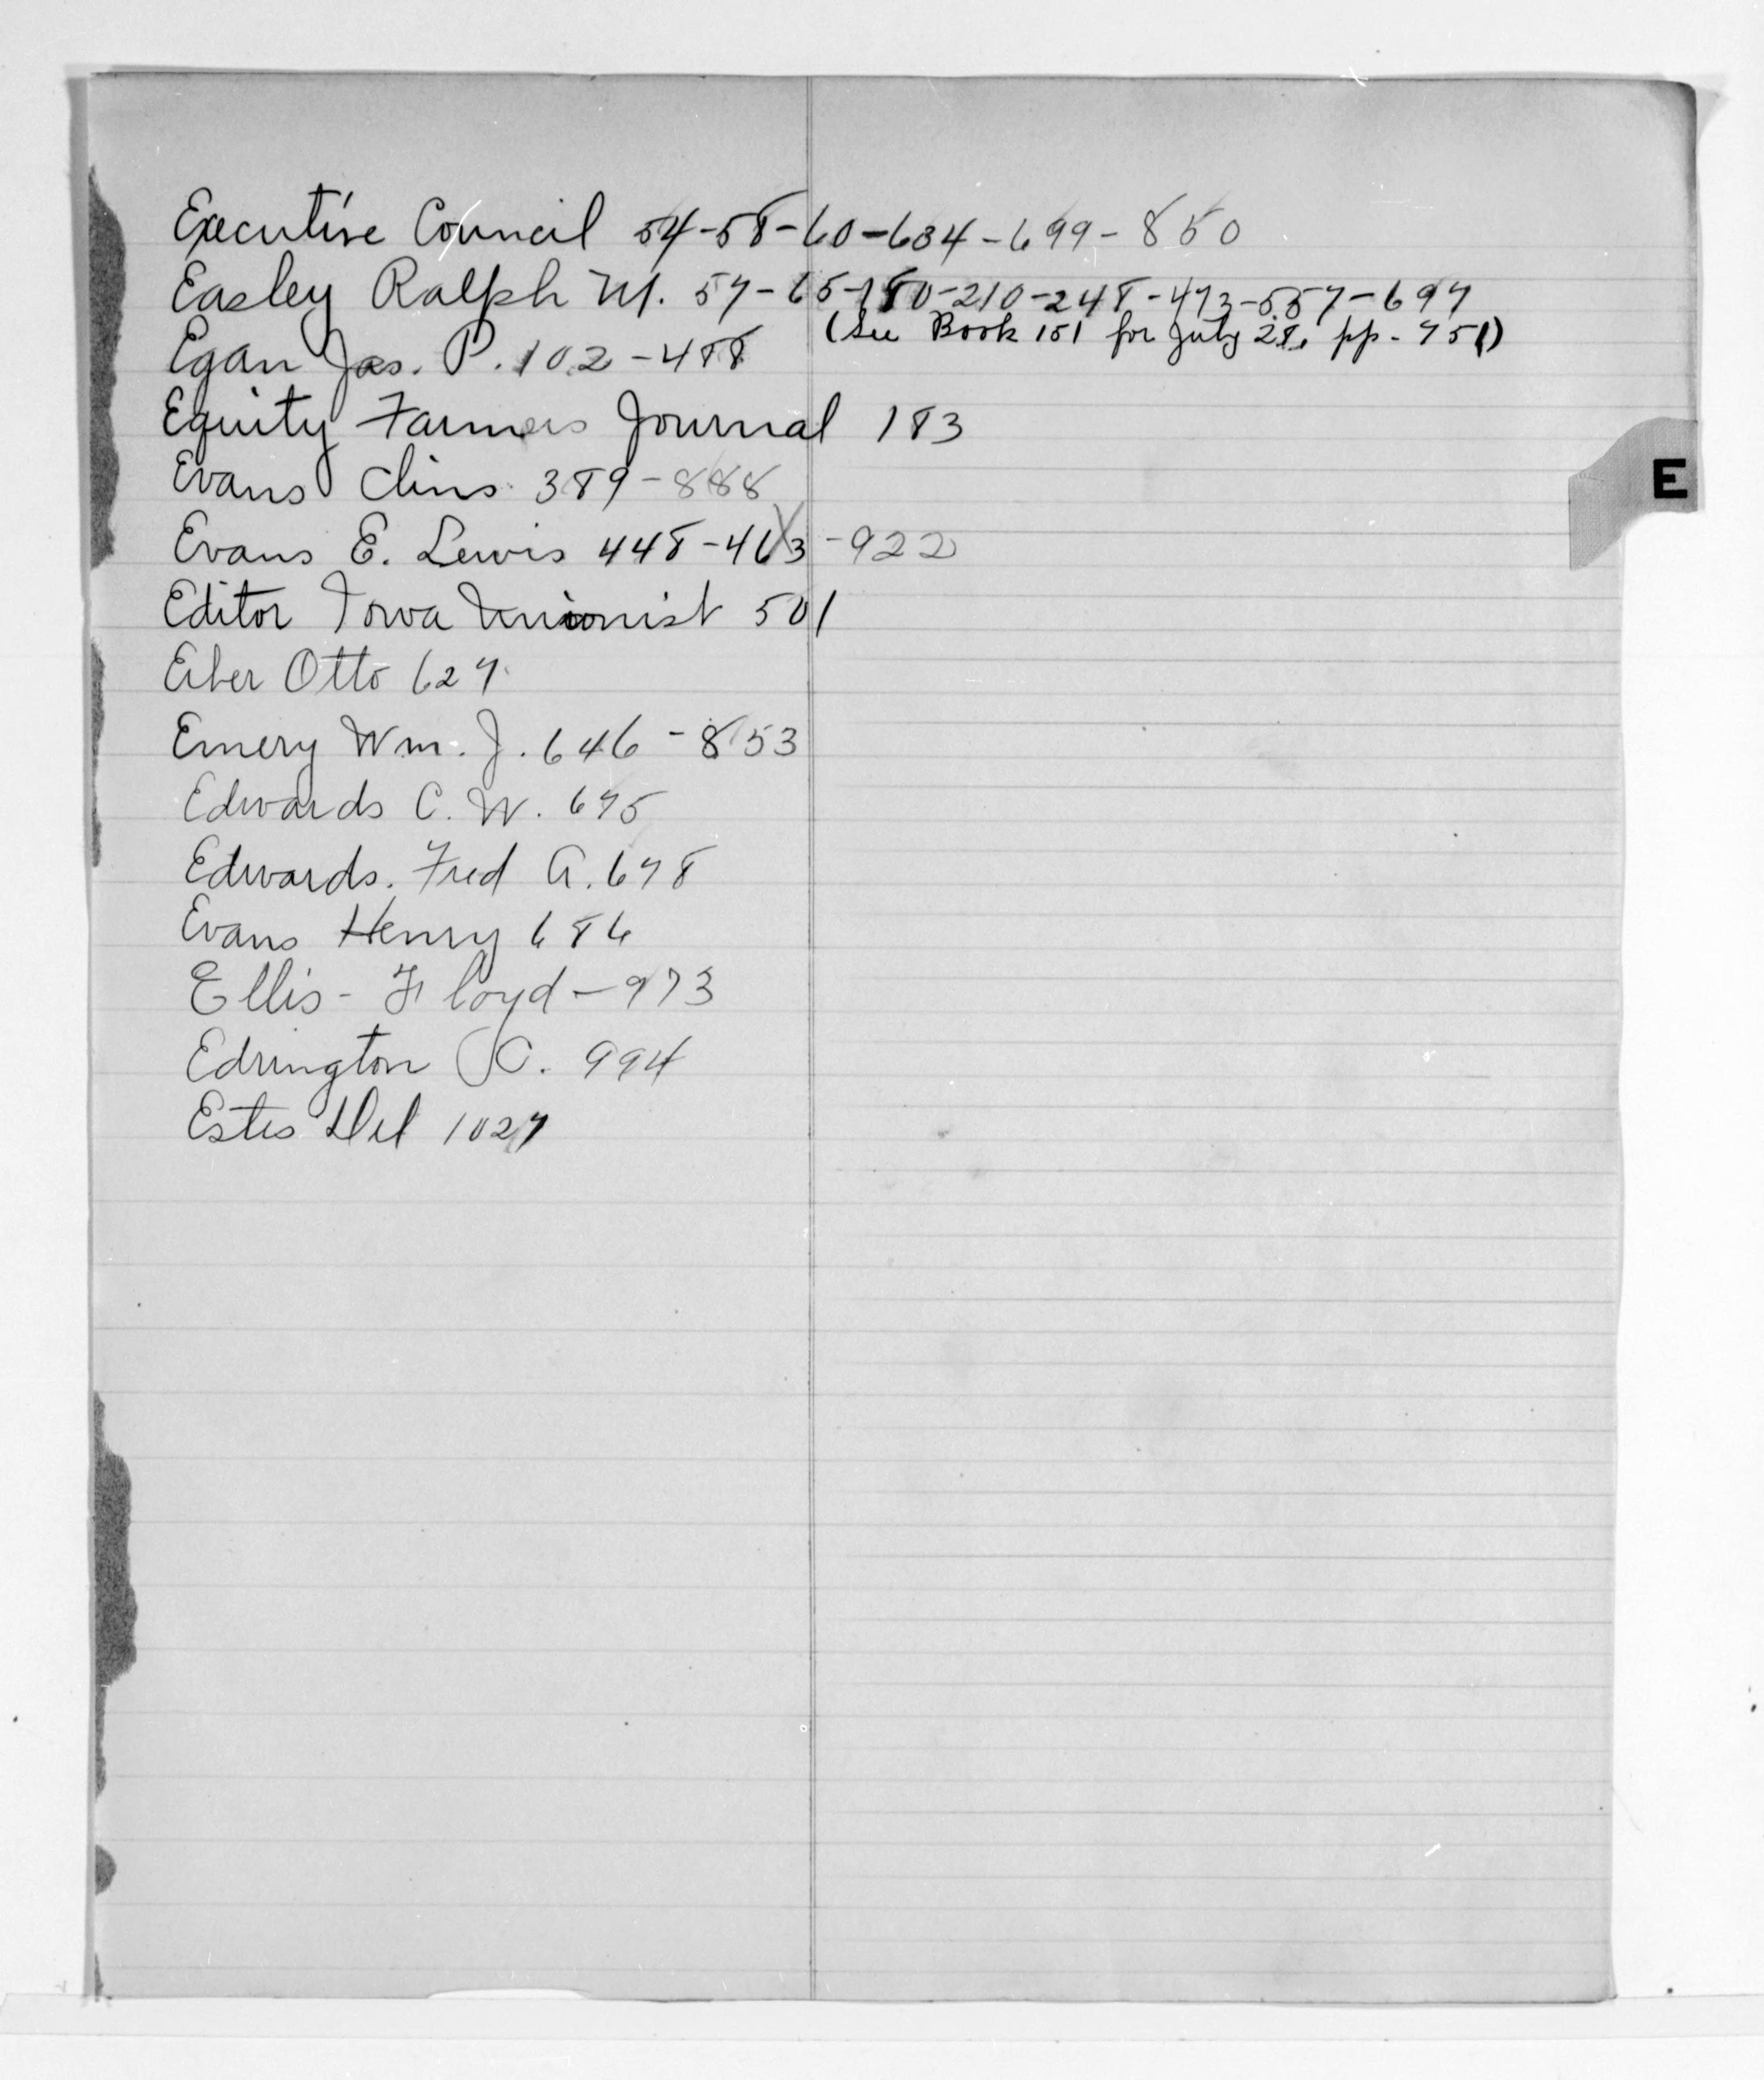 Executive Council 54-58-60-634-699-850
Easley Ralph M. 57-65-180-210-248-473-557-697
(See Book 151 for July 28, pp. 751)
Egan Jas. P. 102-488
Equity Farmers Journal 183
Evans Chris 389-888
Evans E. Lewis 448-463-922
Editor Iowa Unionist 501
E
Otto 627
Emery Wm. J. 646-853
Edwards C. W. 675
Edwards. Fred A. 678
Evans Henry 686
Ellis - Floyd - 973
Edrington C. 994
Estes Del 1027